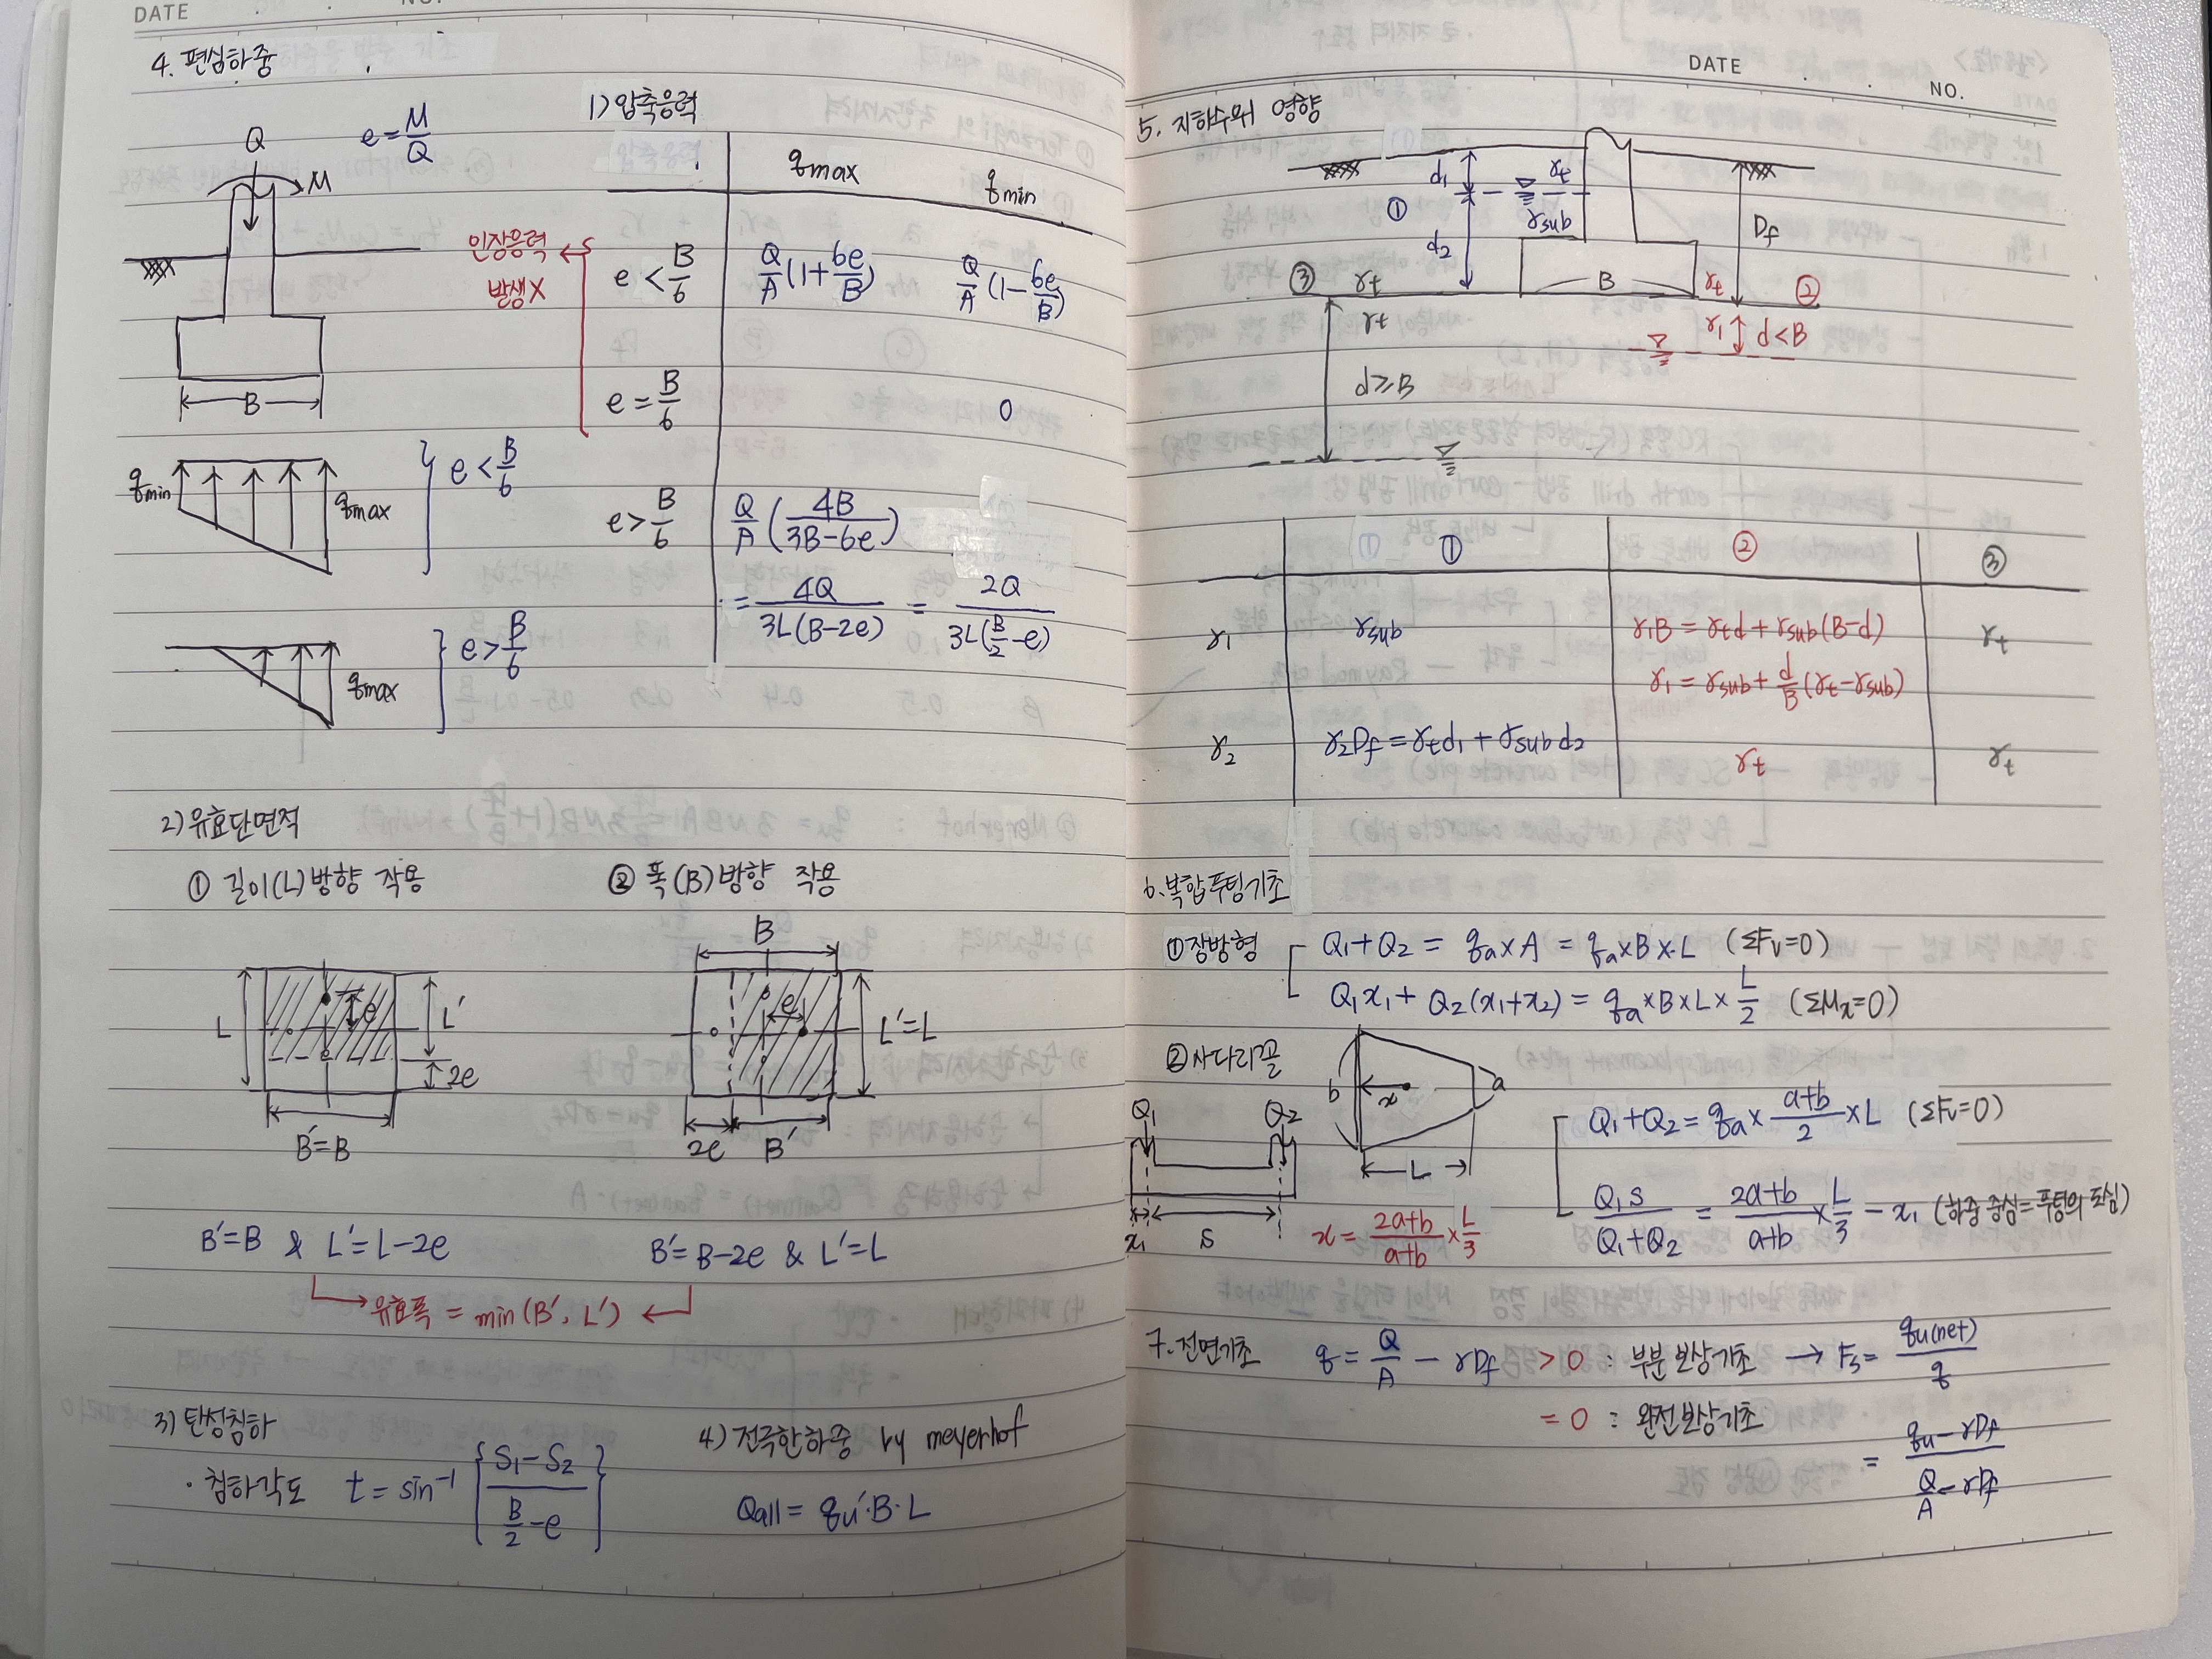 DATE NO.
4. 편심하중
Q
M
e = M/Q
B
1) 압축응력
qmax qmin
인장응력
발생X
e < B/6 Q/A(1+6e/B) Q/A(1-6e/B)
e = B/6 0
e > B/6 Q/A(4B/3B-6e)
= 4Q/3L(B-2e) = 2Q/3L(B/2-e)
qmin qmax e < B/6
qmax e > B/6
2) 유효단면적
① 길이(L)방향 작용
② 폭(B)방향 작용
L e L' 2e
B'=B
B
e L'=L
2e B'
B'=B & L'=L-2e
B'=B-2e & L'=L
유효폭 = min(B', L')
3) 탄성침하
· 침하각도 t = sin⁻¹{S1-S2 / B/2-e}
4) 전극한하중 by meyerhof
Qall = qu'·B·L
DATE
NO.
5. 지하수위 영향
d1 γt
① γsub
d2
Df
③ γt B γt ②
γt γ1 d<B
d≥B
① ② ③
γ1 γsub γ1B = γtd + γsub(B-d) γt
γ1 = γsub + d/B(γt-γsub)
γ2 γ2Df = γtd1 + γsubd2 γt γt
6. 복합푸팅기초
① 장방형 Q1+Q2 = qa×A = qa×B×L (ΣFv=0)
Q1x1 + Q2(x1+x2) = qa×B×L×L/2 (ΣMx=0)
② 사다리꼴
b x a
L
Q1 Q2
x1 S
x = 2a+b/a+b × L/3
Q1+Q2 = qa × a+b/2 × L (ΣFv=0)
Q1S/Q1+Q2 = 2a+b/a+b × L/3 - x1 (하중 중심=푸팅의 도심)
7. 전면기초 q = Q/A - γDf > 0 : 부분보상기초 → Fs = qu(net)/q
= 0 : 완전보상기초
= qu-γDf / Q/A-γDf